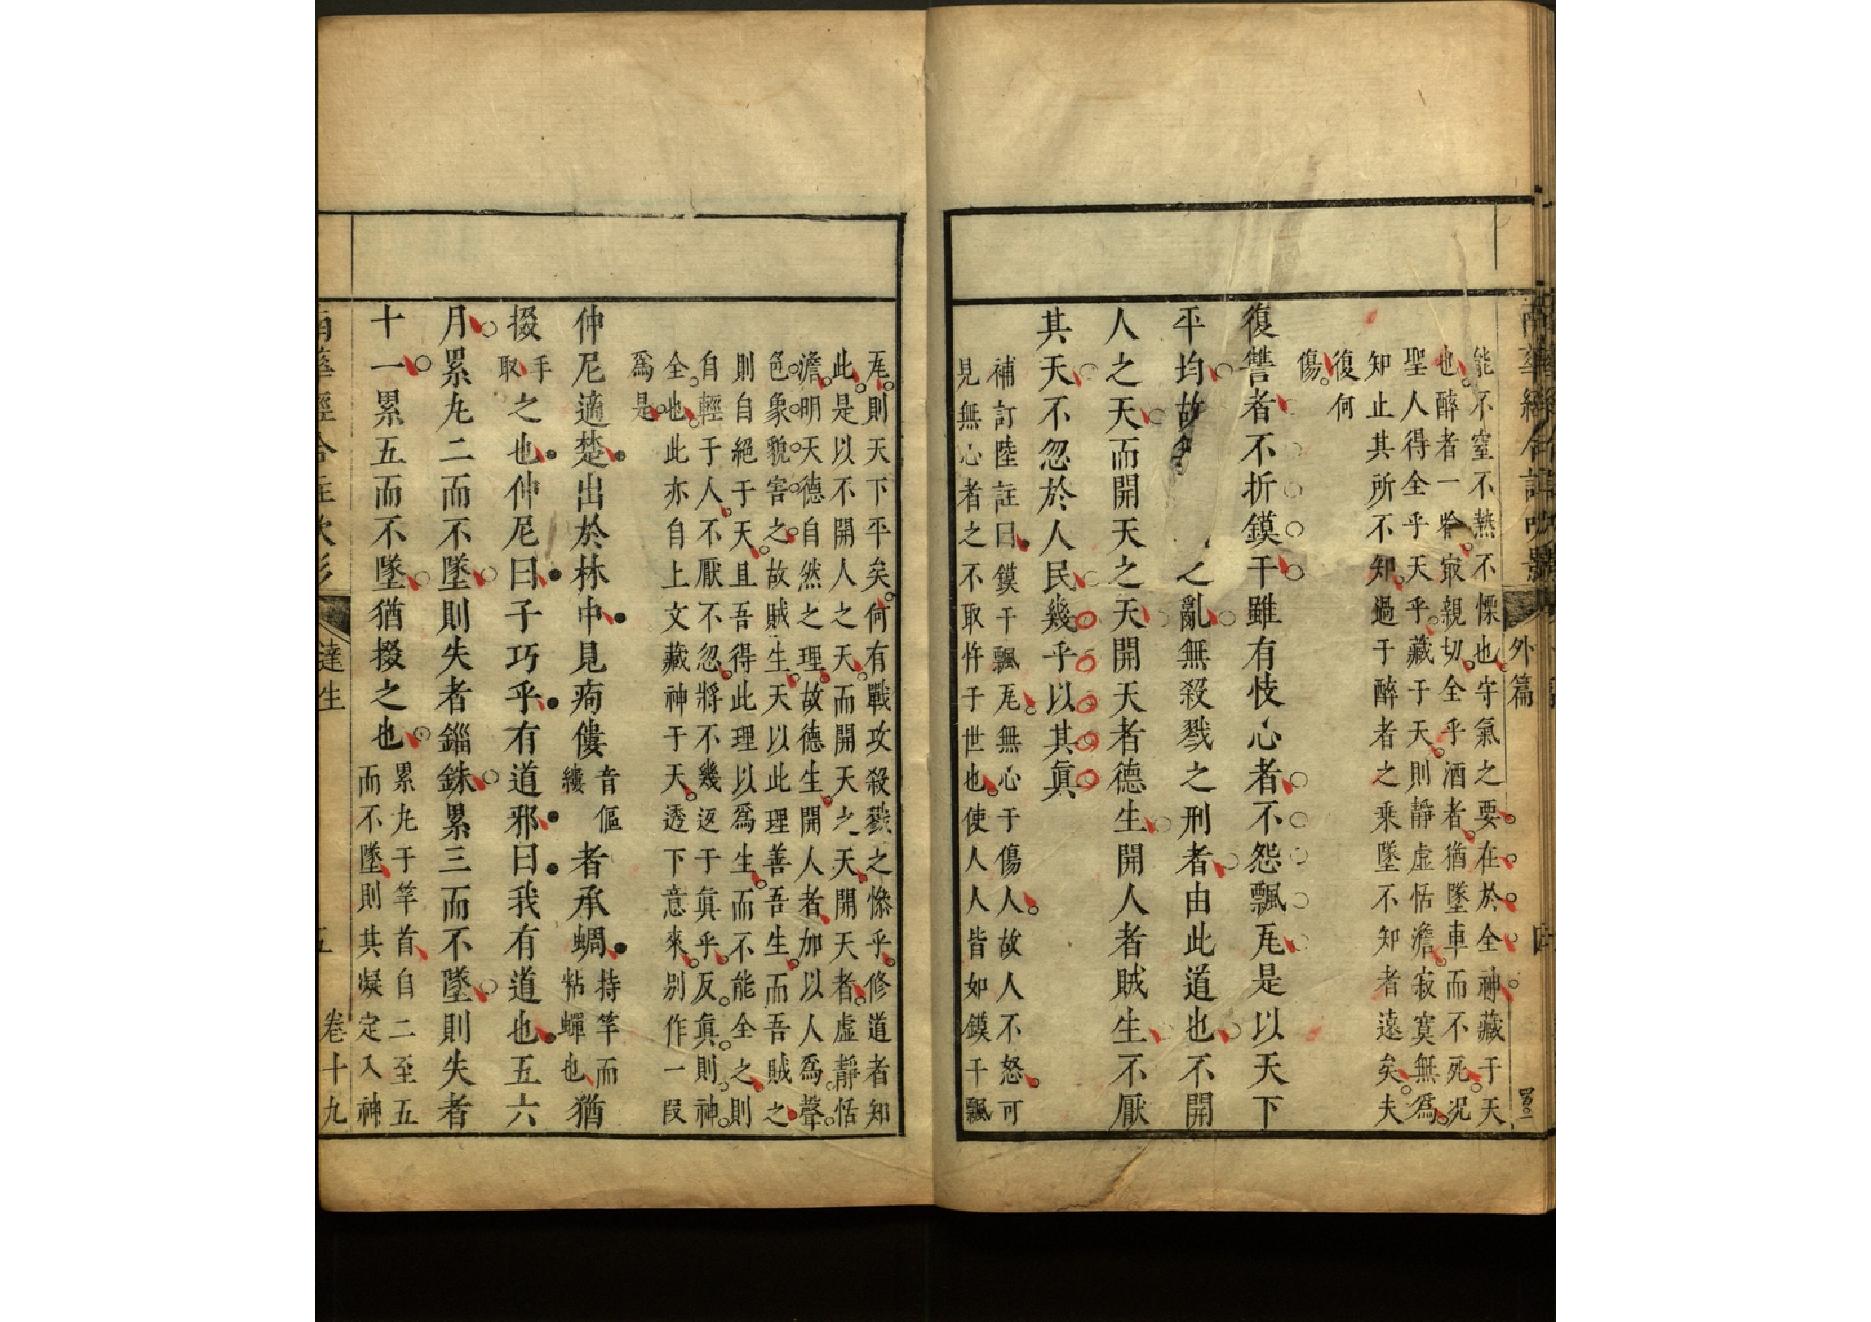 能不窒不熱不慄也守氣之要在於全神藏于天
也醉者一㕦㝡親切全乎酒者猶墜車而不死况
聖人得全乎天乎藏于天則靜虛恬澹寂寞無爲
知止其所不知過于醉者之乘墜不知者遠矣夫
復何
傷
復讐者不折鏌干雖有忮心者不怨飄瓦是以天下
平均故
之亂無殺戮之刑者由此道也不開
人之天而開天之天開天者德生開人者賊生不厭
其天不忽於人民幾乎以其眞
補訂陸註曰鏌干飄瓦無心于傷人故人不怒可
見無心者之不取忤于世也使人人皆如鏌干飄
瓦則天下平矣何有戰攻殺戮之慘乎修道者知
此是以不開人之天而開天之天開天者虛靜恬
澹明天德自然之理故德生開人者加以人爲聲
色象貌害之故賊生天以此理善吾生而吾賊之
則自絕于天且吾得此理以爲生而不能全之則
自輕于人不厭不忽將不幾返于眞乎反眞則神
全也此亦自上文藏神于天透下意來别作一段
爲是
仲尼適楚出於林中見痀僂音傴縷者承蜩持竿而粘蟬也猶
掇手取之也仲尼曰子巧乎有道邪曰我有道也五六
月累丸二而不墜則失者錙銖累三而不墜則失者
十一累五而不墜猶掇之也累丸于竿首自二至五而不墜則其凝定入神
達生
五
卷十九
外篇